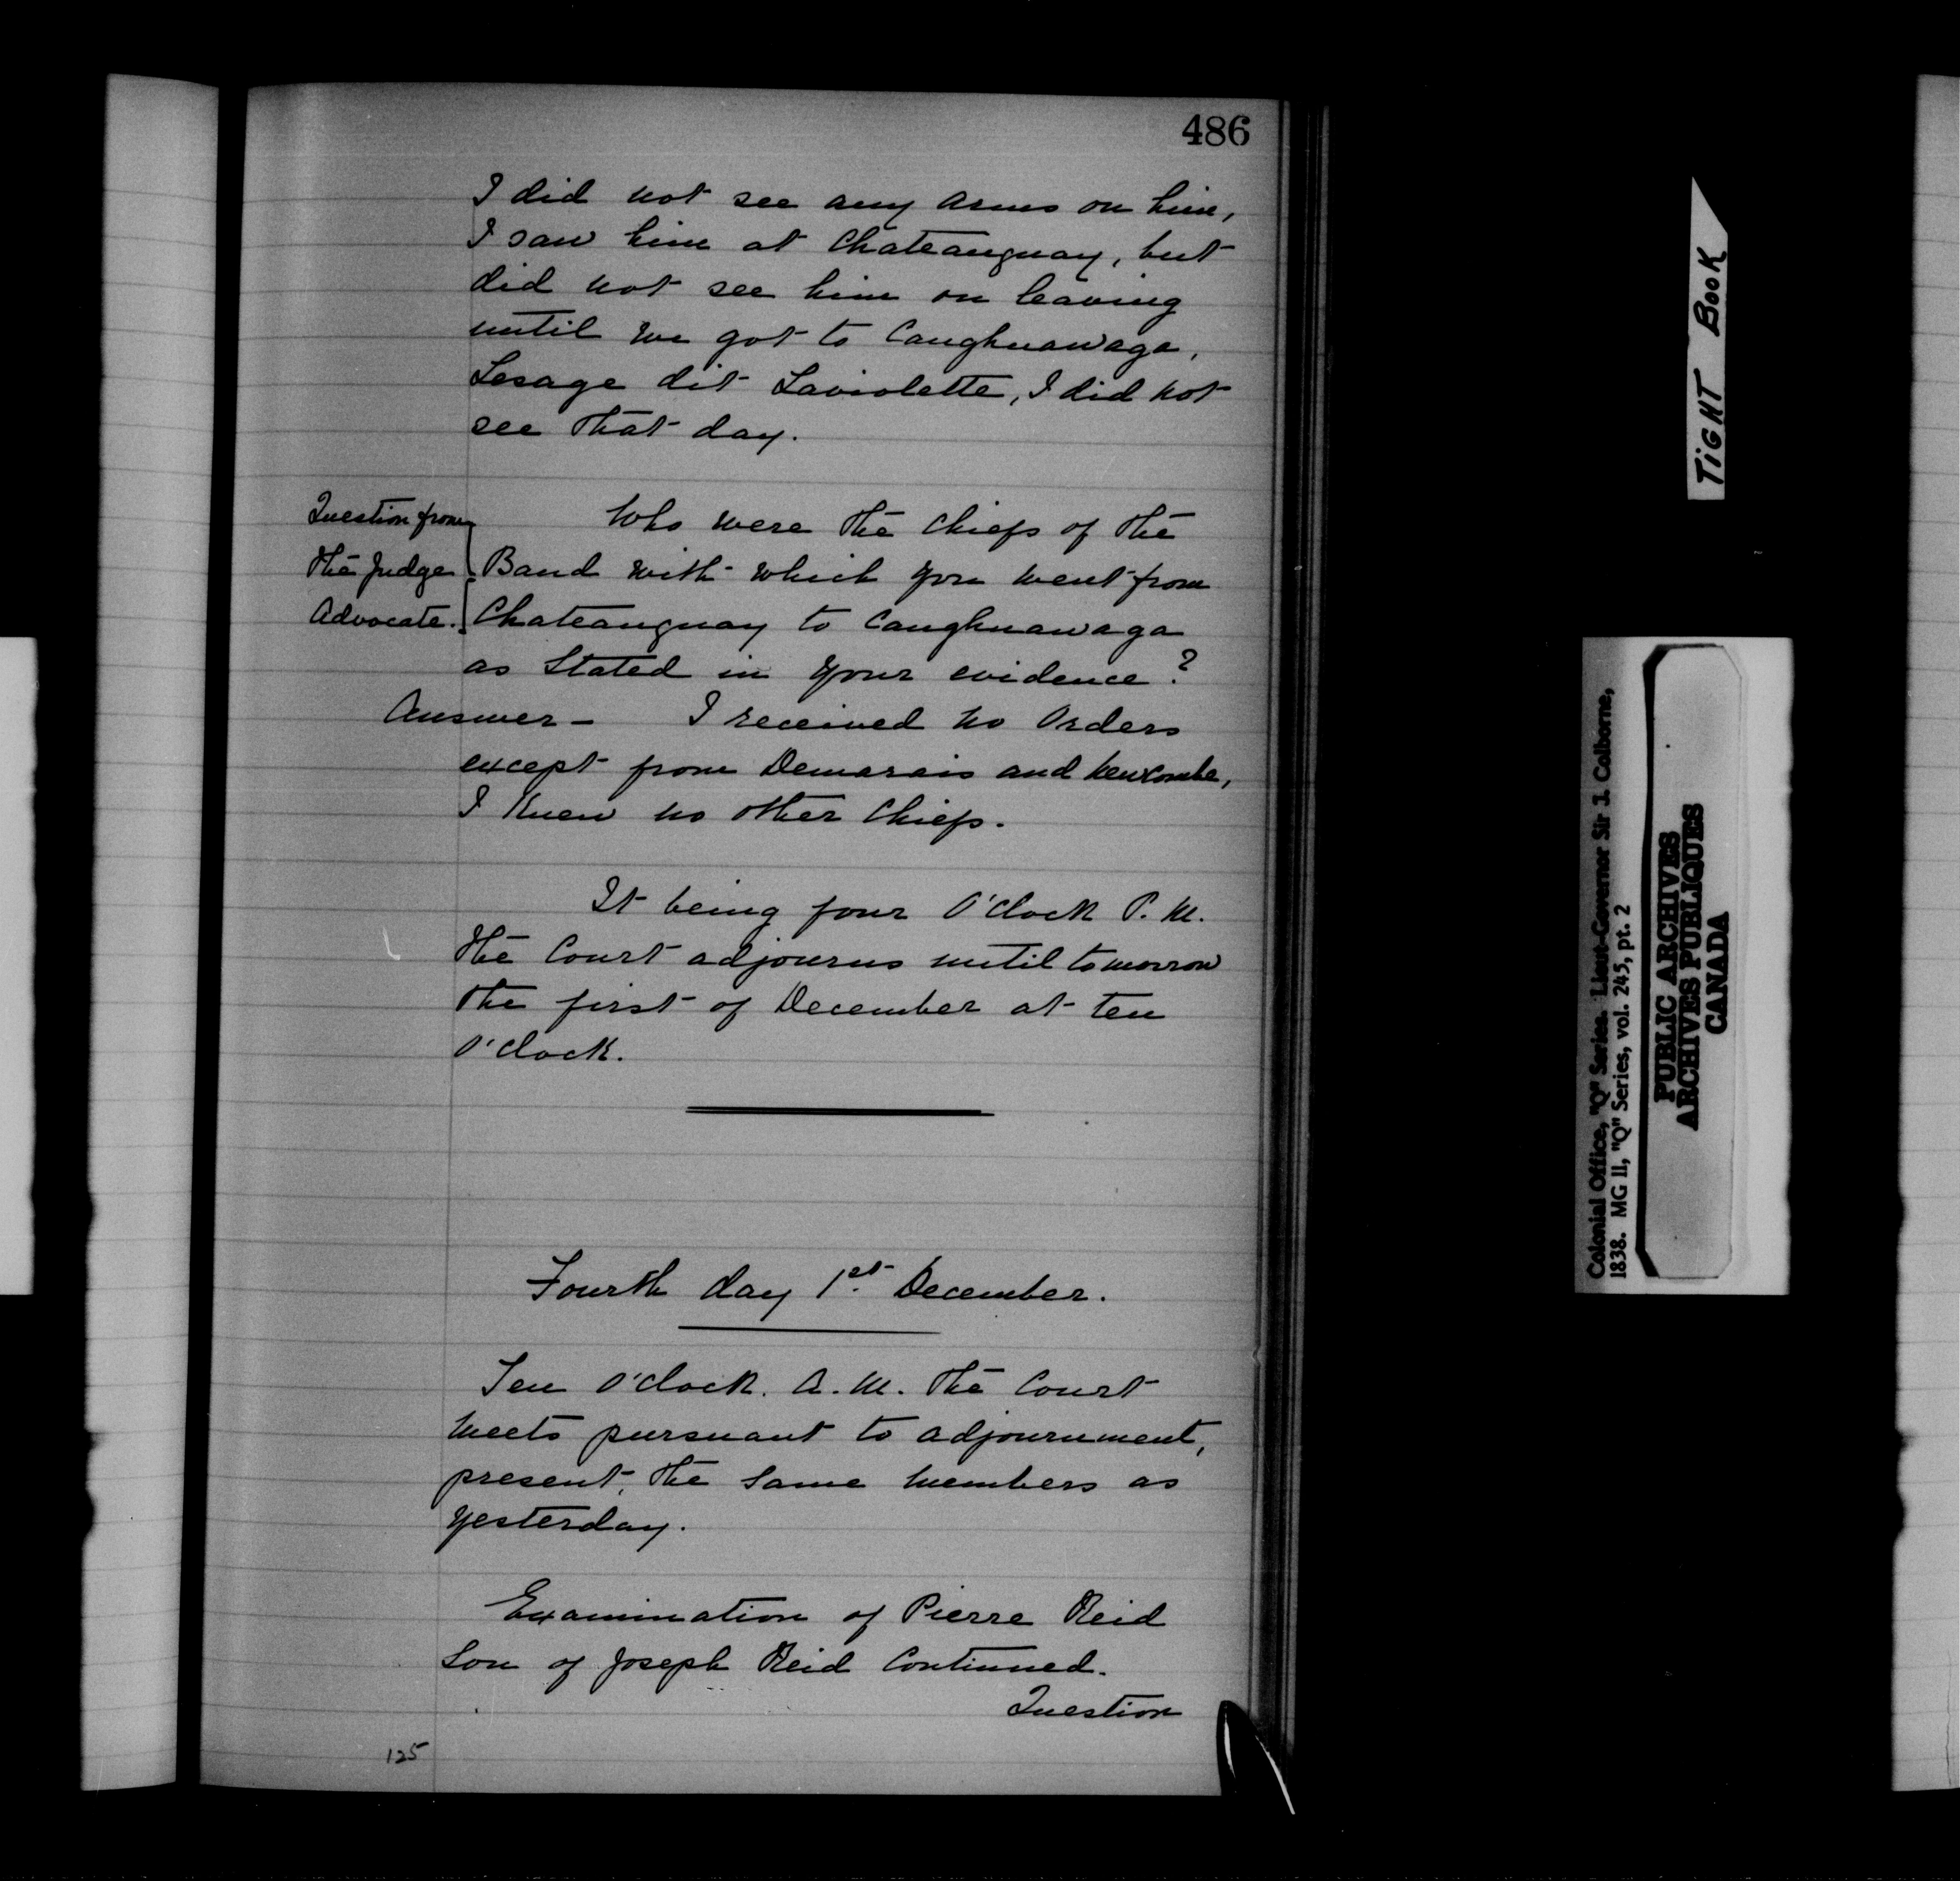 486
I did not see any arms on him,
I saw him at Chateauguay, but
did not see him on leaving
until we got to Caughnawaga,
Lesage dit Laviolette, I did not
see that day.
Question from
the Judge
Advocate.
Who were the Chiefs of the
Band with which you went from
Chateauguay to Caughnawaga
as Stated in your evidence?
Answer— I received no Orders
except from Demarais and Newcombe,
I knew no other Chiefs.
It being four O'Clock P.M.
the Court adjourns until tomorrow
the first of December at ten
O'Clock.
Fourth day 1st. December.
Ten O'Clock. A.M. the Court
meets pursuant to adjournment,
present, the same members as
yesterday.
Examination of Pierre Reid
Son of Joseph Reid Continued.
Question
125
TIGHT BOOK
Colonial Office, "Q" Series. Lieut-Governor Sir J. Colborne,
1838. MG 11, "Q" Series, vol. 245, pt. 2
PUBLIC ARCHIVES
ARCHIVES PUBLIQUES
CANADA